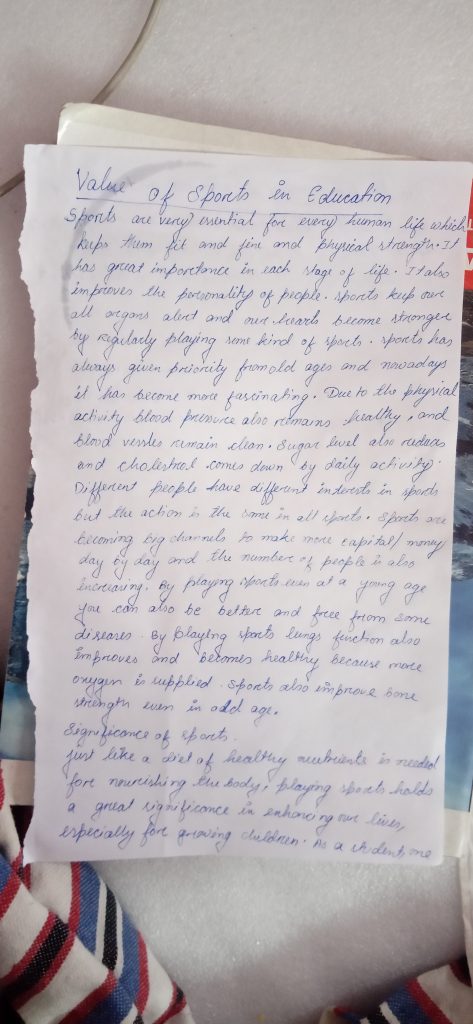 Value of Sports in Education
Sports are very essential for every human life which
keeps them fit and fine and physical strength. It
has great importance in each stage of life. It also
improves the personality of people. Sports keep our
all organs alert and our hearts become stronger
by regularly playing some kind of sports. Sports has
always given priority from old ages and nowadays
it has become more fascinating. Due to the physical
activity blood pressure also remains healthy, and
blood vessles remain clean. Sugar level also reduces
and cholestrol comes down by daily activity.
Different people have different interests in sports
but the action is the same in all sports. Sports are
becoming big channels to make more capital/money
day by day and the number of people is also
increasing. By playing sports even at a young age
you can also be better and free from some
diseases. By playing sports lungs function also
improves and becomes healthy because more
oxygen is supplied. Sports also improve bone
strength even in old age.
Significance of sports.
Just like a diet of healthy nutrients is needed
for nourishing the body, playing sports holds
a great significance in enhancing our lives,
especially for growing children. As a student, one